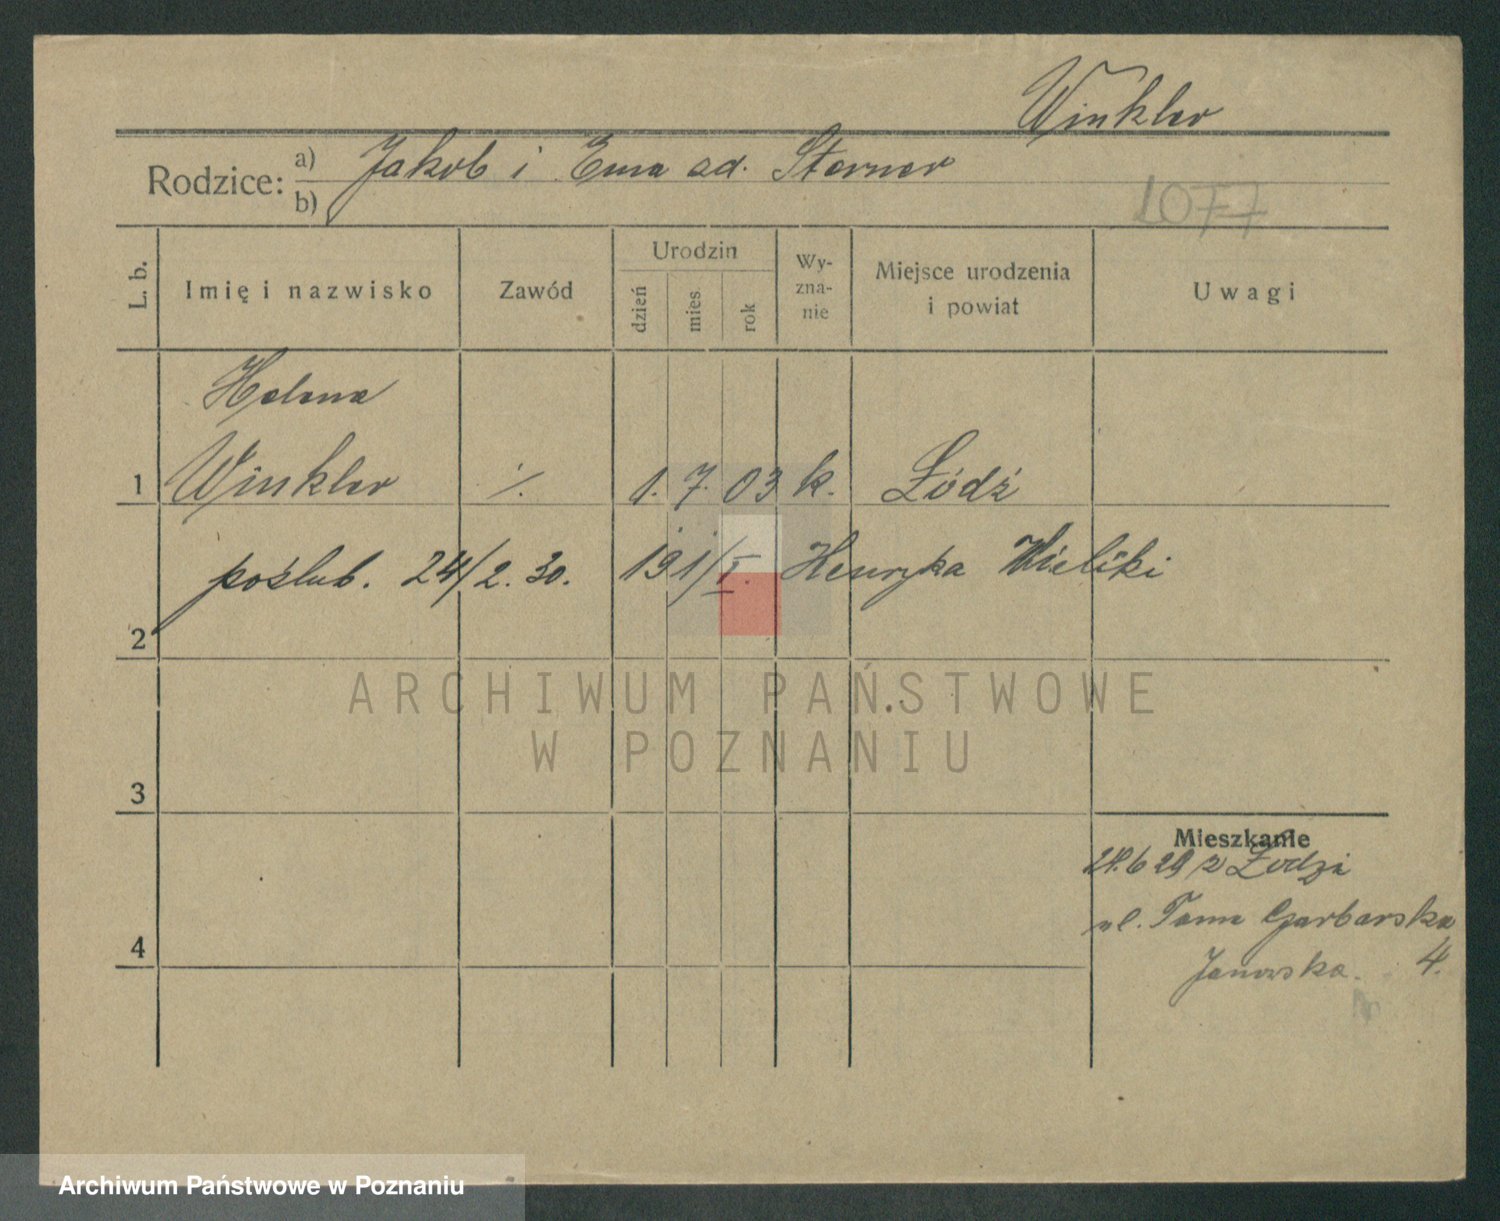 Winkler
Rodzice: a) Jakob i Ema ad. Sterner
b)
1077
L. b. Imię i nazwisko Zawód Urodzin dzień mies. rok Wy-zna-nie Miejsce urodzenia i powiat Uwagi
Helena
1 Winkler ./. 1. 7. 03 k. Łódź
poślub. 24/2. 30. 191/I. Henryka Wieliki
2
ARCHIWUM PAŃSTWOWE
W POZNANIU
3
Mieszkanie
6 29 z Łodzi
ul. Tama Garbarska
4 Janowska. 4.
Archiwum Państwowe w Poznaniu